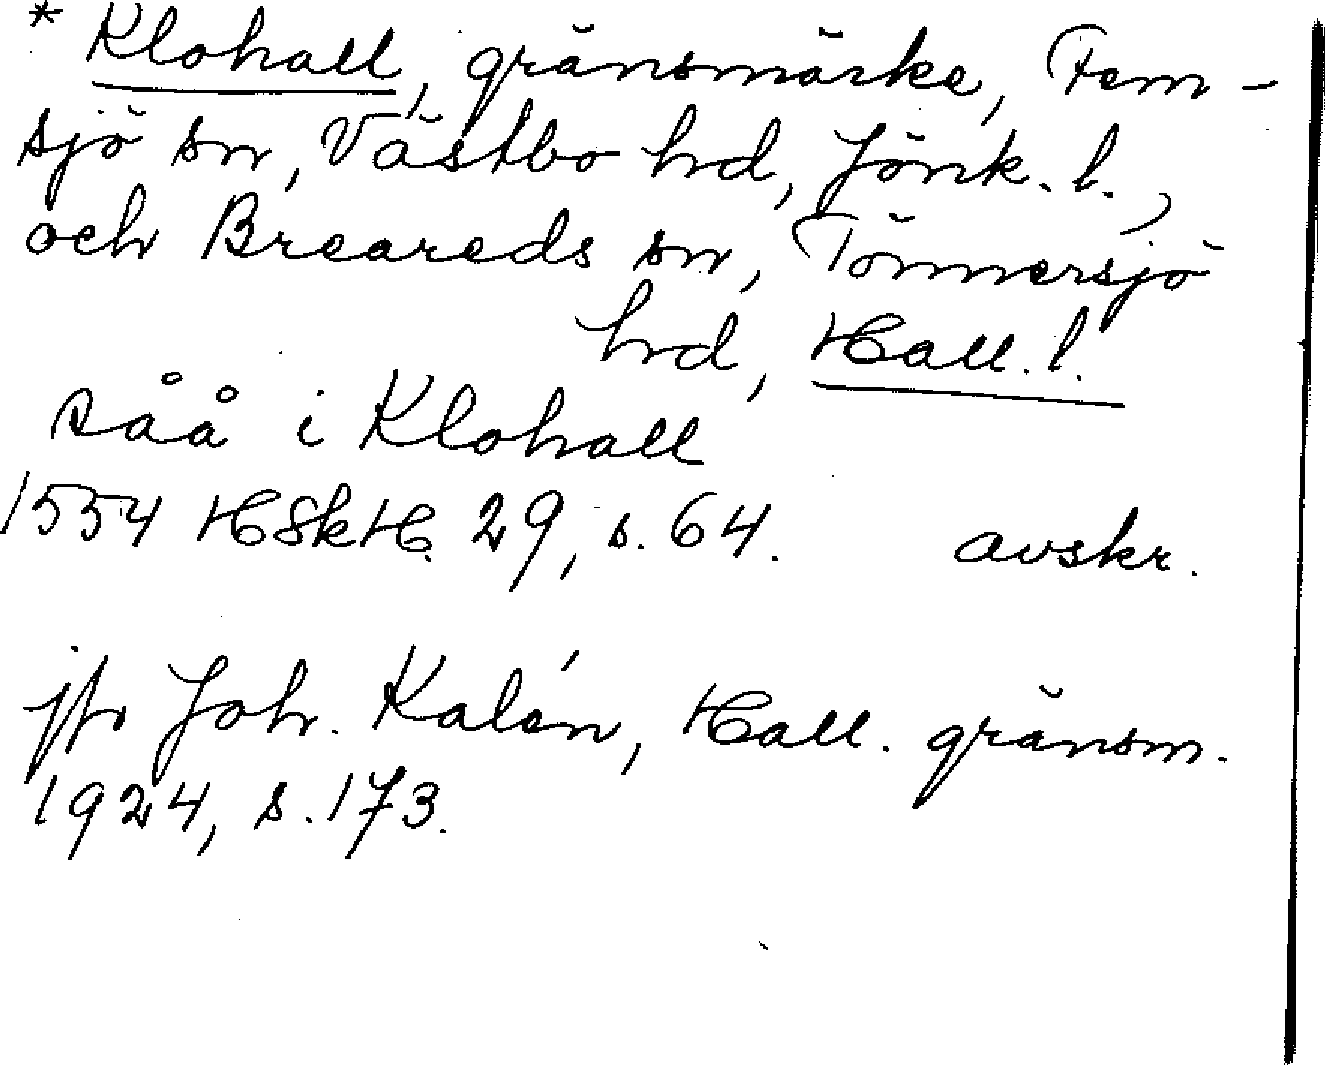 * Klohall, gränsmärke, Fem-
sjö sn, Västbo hd, Jönk. l.,
och Breareds sn, Tönnersjö
hd, Hall. l.
såå i Klohall
1554 HSkH. 29, s. 64. avskr.
jfr Joh. Kalén, Hall. gränsm.
1924, s. 173.